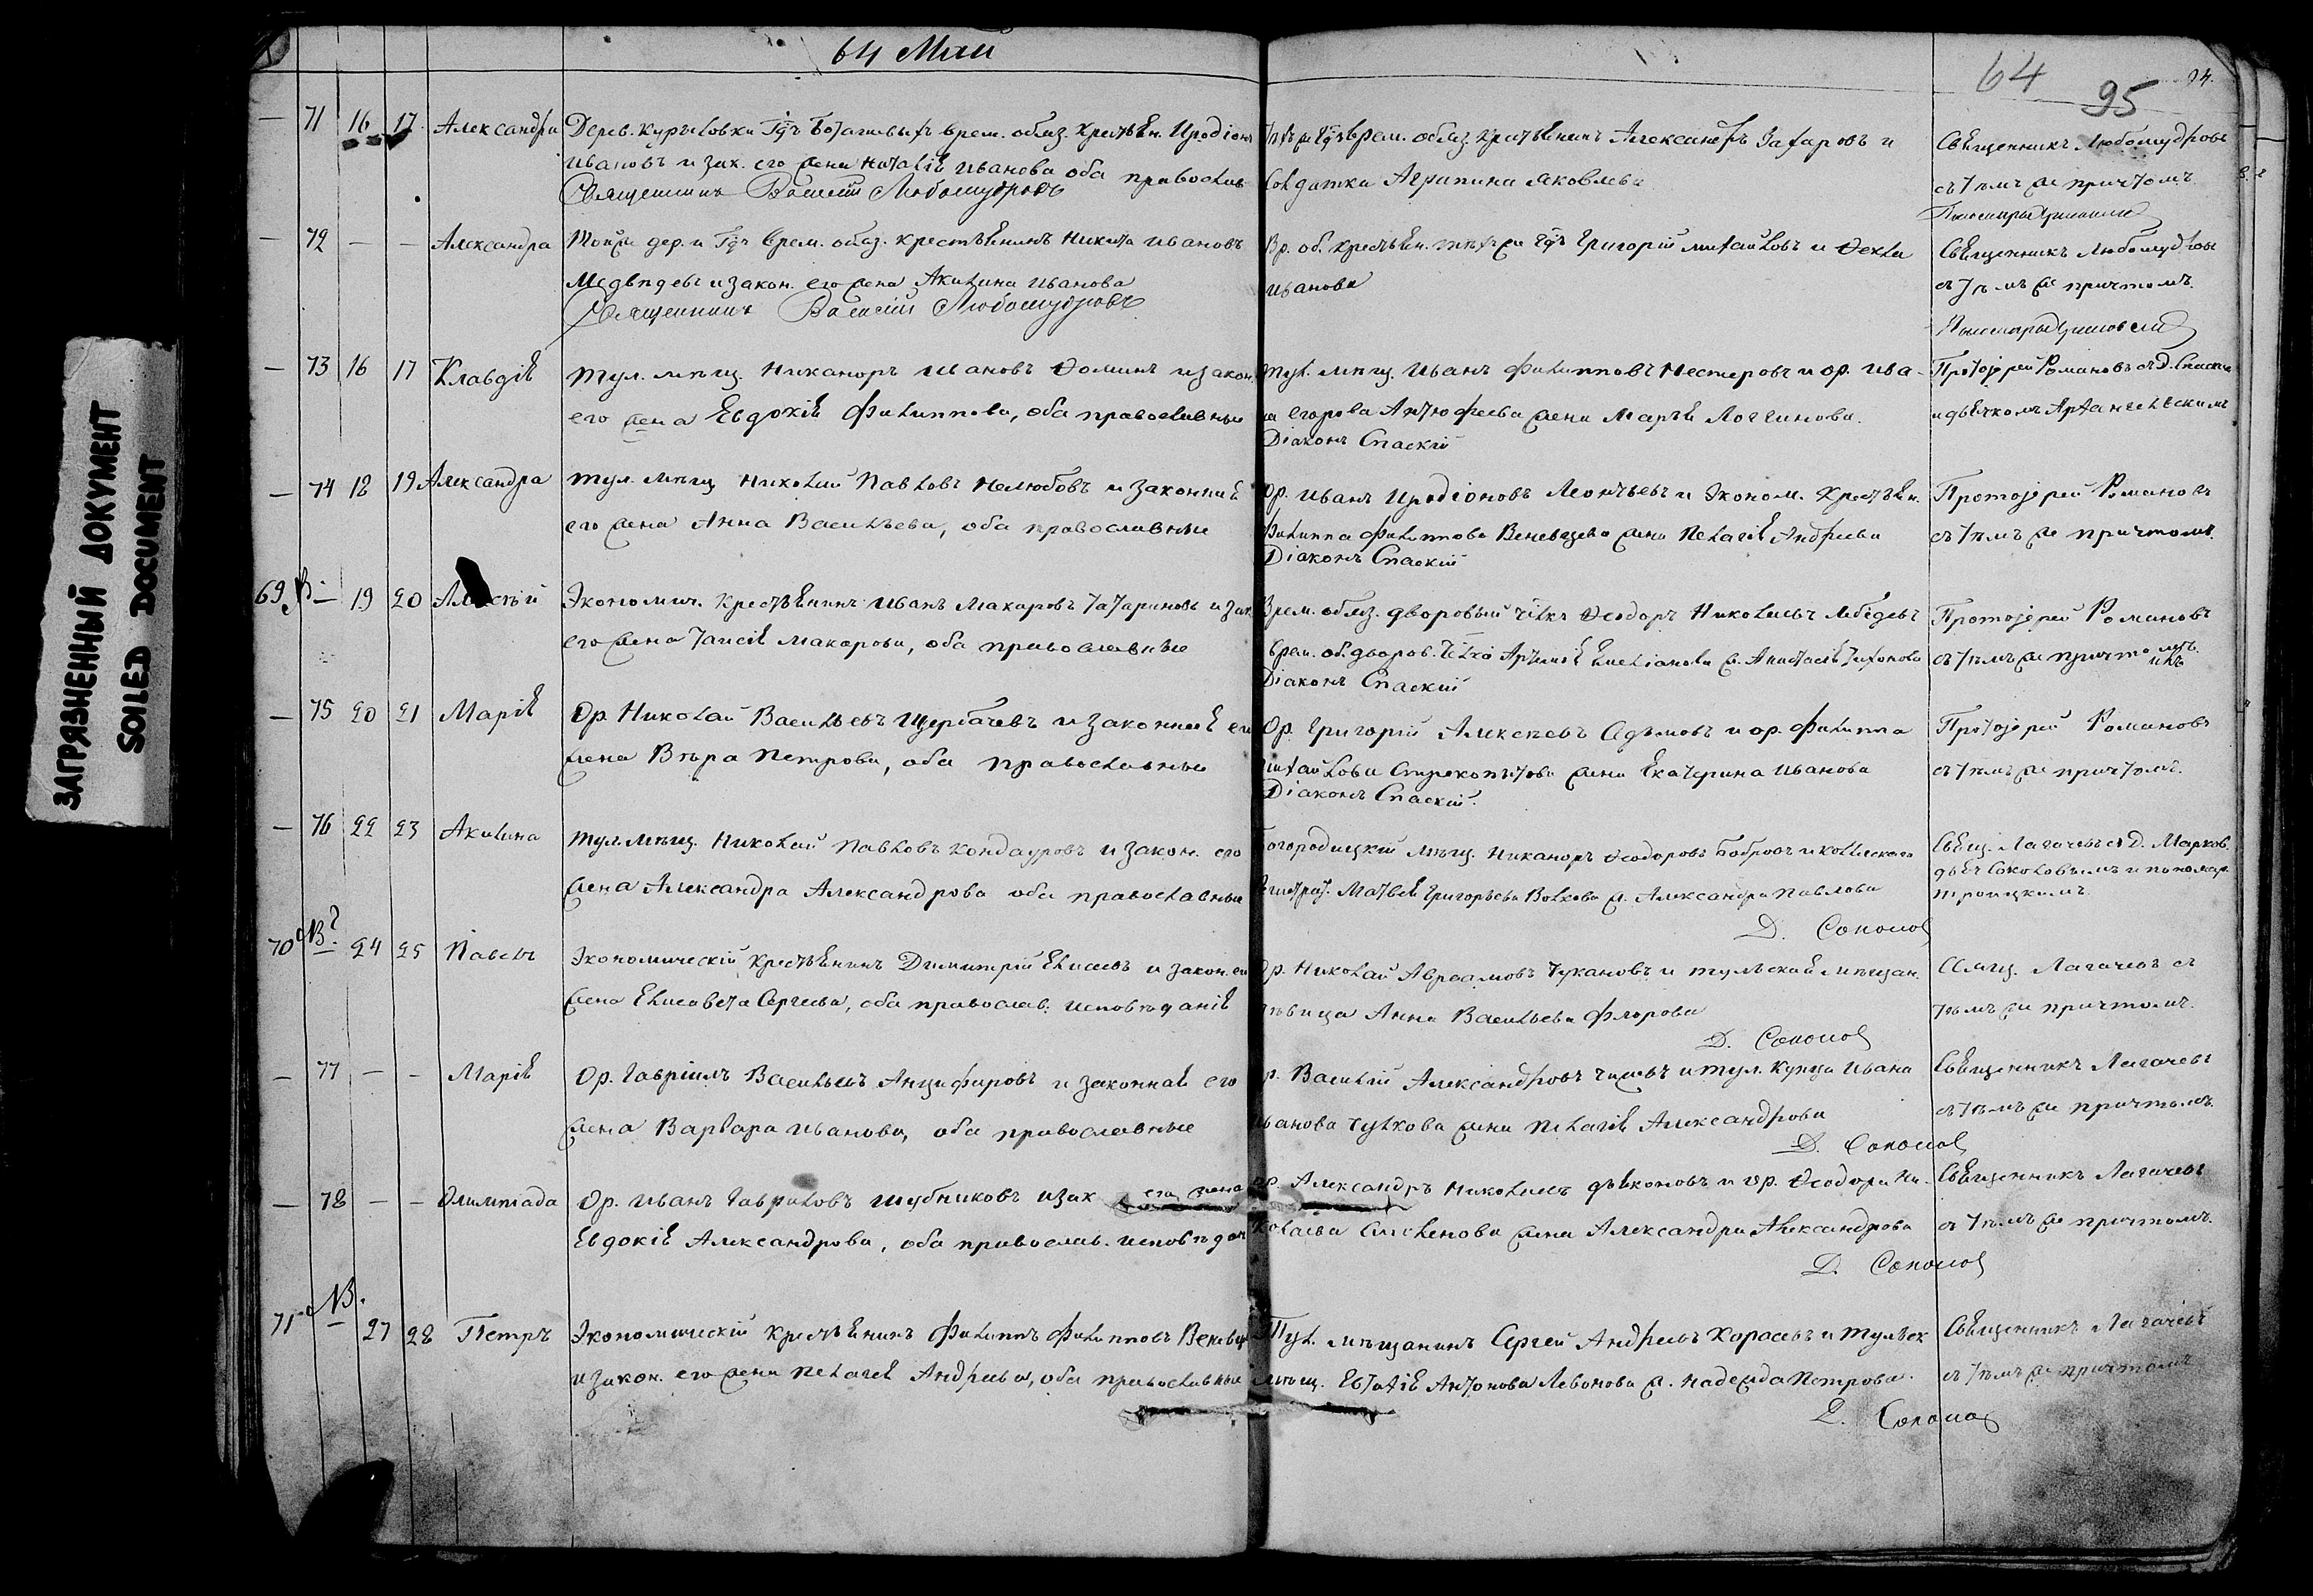 ЗАГРЯЗНЕННЫЙ ДОКУМЕНТ
SOILED DOCUMENT
64 Май
64
95
— 71 16 17 Александра Дерев. Гдъ врем. обяз. крестьян. Иродіонъ
Ивановъ и зак. его жена Наталія Иванова оба православ
Священникъ Василій Любомудровъ
врем. обяз. крестьянинъ Александръ Захаровъ и
Солдатка Агрипина Яковлева
Священникъ Любомудровъ
съ тѣмъ же причтомъ
— 72 — — Александра Той же дер. и Гдъ врем. обяз. крестьянинъ Никита Ивановъ
Медвѣдевъ и закон. его жена Акилина Иванова
Священникъ Василій Любомудровъ
Вр. об. крестьян. тѣхъ же Гдъ Григорій Михайловъ и Ѳекла
Иванова
Священникъ Любомудровъ
съ тѣмъ же причтомъ
— 73 16 17 Клавдія Тул. мѣщ. Никаноръ Ивановъ Ѳоминъ и закон.
его жена Евдокія Филиппова, оба православные
Тул. мѣщ. Иванъ Филипповъ Нестеровъ и ор. Ива-
на Егорова жена Марѳа Логгинова.
Діаконъ Спаскій
Протоіерей Романовъ съ Д. Спаским
и дьячкомъ Архангельскимъ
— 74 18 19 Александра Тул. мѣщ Николай Павловъ Нелюбовъ и законная
его жена Анна Васильева, оба православные
Ор. Иванъ Иродіоновъ Леонтьевъ и Эконом. крестьян.
Филиппа Филиппова Веневцева жена Пелагія Андреева
Діаконъ Спаскій
Протоіерей Романовъ
съ тѣмъ же причтомъ.
69 NB — 19 20 Алексѣй Экономич. крестьянинъ Иванъ Макаровъ Татариновъ и зак.
его жена Таисія Макарова, оба православные
Врем. обяз. дворовый чвлкъ Ѳеодоръ Николаевъ Лебедевъ
врем. об. дворов. ж. Анастасія Тихонова
Діаконъ Спаскій
Протоіерей Романовъ
съ тѣмъ же причтомъ.
— 75 20 21 Марія Ор. Николай Васильевъ Щербачевъ и законная его
жена Вѣра Петрова, оба православные
Ор. Григорій Алексеевъ Адамовъ и ор. Филиппа
Михайлова Стрекопытова жена Екатерина Иванова
Діаконъ Спаскій.
Протоіерей Романовъ
съ тѣмъ же причтомъ.
— 76 22 23 Акилина Тул. мѣщ. Николай Павловъ Кондауровъ и закон. его
жена Александра Александрова оба православные
Богородицкій мѣщ. Никаноръ Ѳеодоровъ Бобровъ и коллежскаго
регистрат. Матвея Григорьева Волкова ж. Александра Павлова
Д. Соколов
Свящ. Лагачевъ съ Д. Марков.
дьяч Соколовымъ и пономар.
Троицкимъ
70 NB 24 25 Павелъ Экономическій крестьянинъ Димитрій Елисеевъ и закон. его
жена Елисавета Сергеева, оба православ. исповѣданія
Ор. Николай Авраамовъ Чукановъ и тульская мѣщан.
дѣвица Анна Васильева Флорова
Д. Соколов
Свящ. Лагачевъ съ
тѣмъ же причтомъ.
— 77 — — Марія Ор. Гавріилъ Васильевъ Анцифировъ и законная его
жена Варвара Иванова, оба православные
Ор. Василій Александровъ и тул. купца Ивана
Иванова Чулкова жена Пелагія Александрова
Д. Соколов
Священникъ Лагачевъ
съ тѣмъ же причтомъ.
— 78 — — Олимпіада Ор. Иванъ Гавриловъ Шубниковъ и зак его жена
Евдокія Александрова, оба православ. исповѣдан
Ор. Александръ Николаевъ Дьяконовъ и ор. Ѳеодора Ни-
колаева жена Александра Александрова
Д. Соколов
Священникъ Лагачевъ
съ тѣмъ же причтомъ.
71 NB. — 27 28 Петръ Экономическій крестьянинъ Филиппъ Филипповъ Веневц
и закон. его жена Пелагея Андреева, оба православные
Тул. мѣщанинъ Сергей Андреевъ Карасевъ и тульск
мѣщ. Евтихія Антонова Левонова ж. Надежда Петрова.
Д. Соколов
Священникъ Лагачевъ
съ тѣмъ же причтомъ